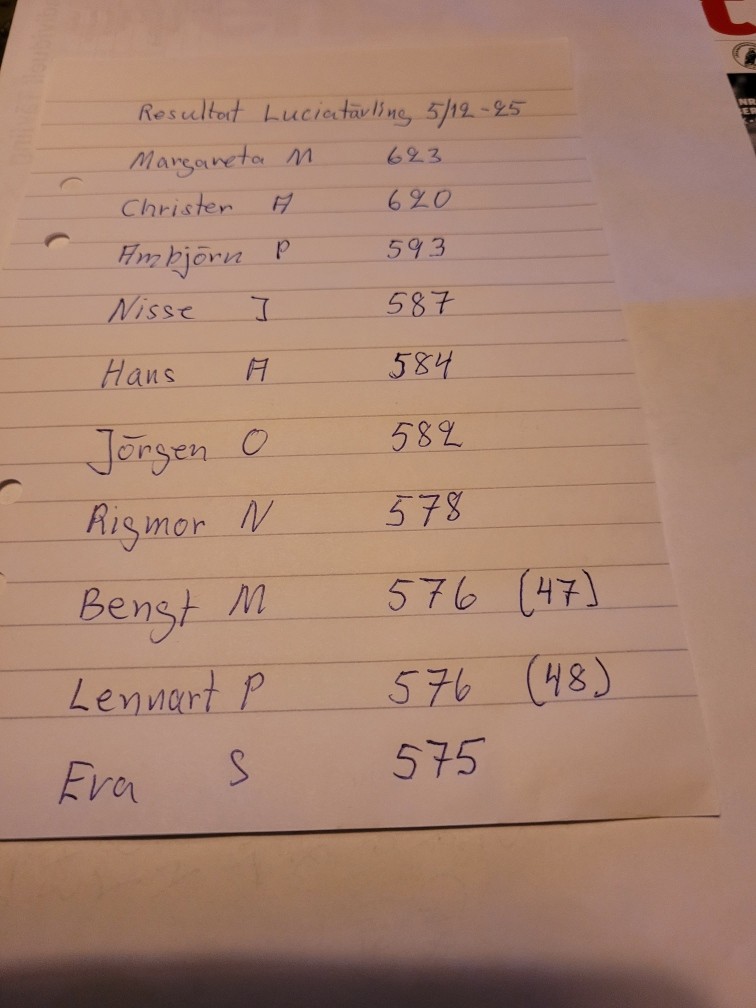 Resultat Luciatävling 5/12-25
Margareta M 623
Christer A 620
Ambjörn P 593
Nisse J 587
Hans A 584
Jörgen O 582
Rigmor N 578
Bengt M 576 (47)
Lennart P 576 (48)
Eva S 575